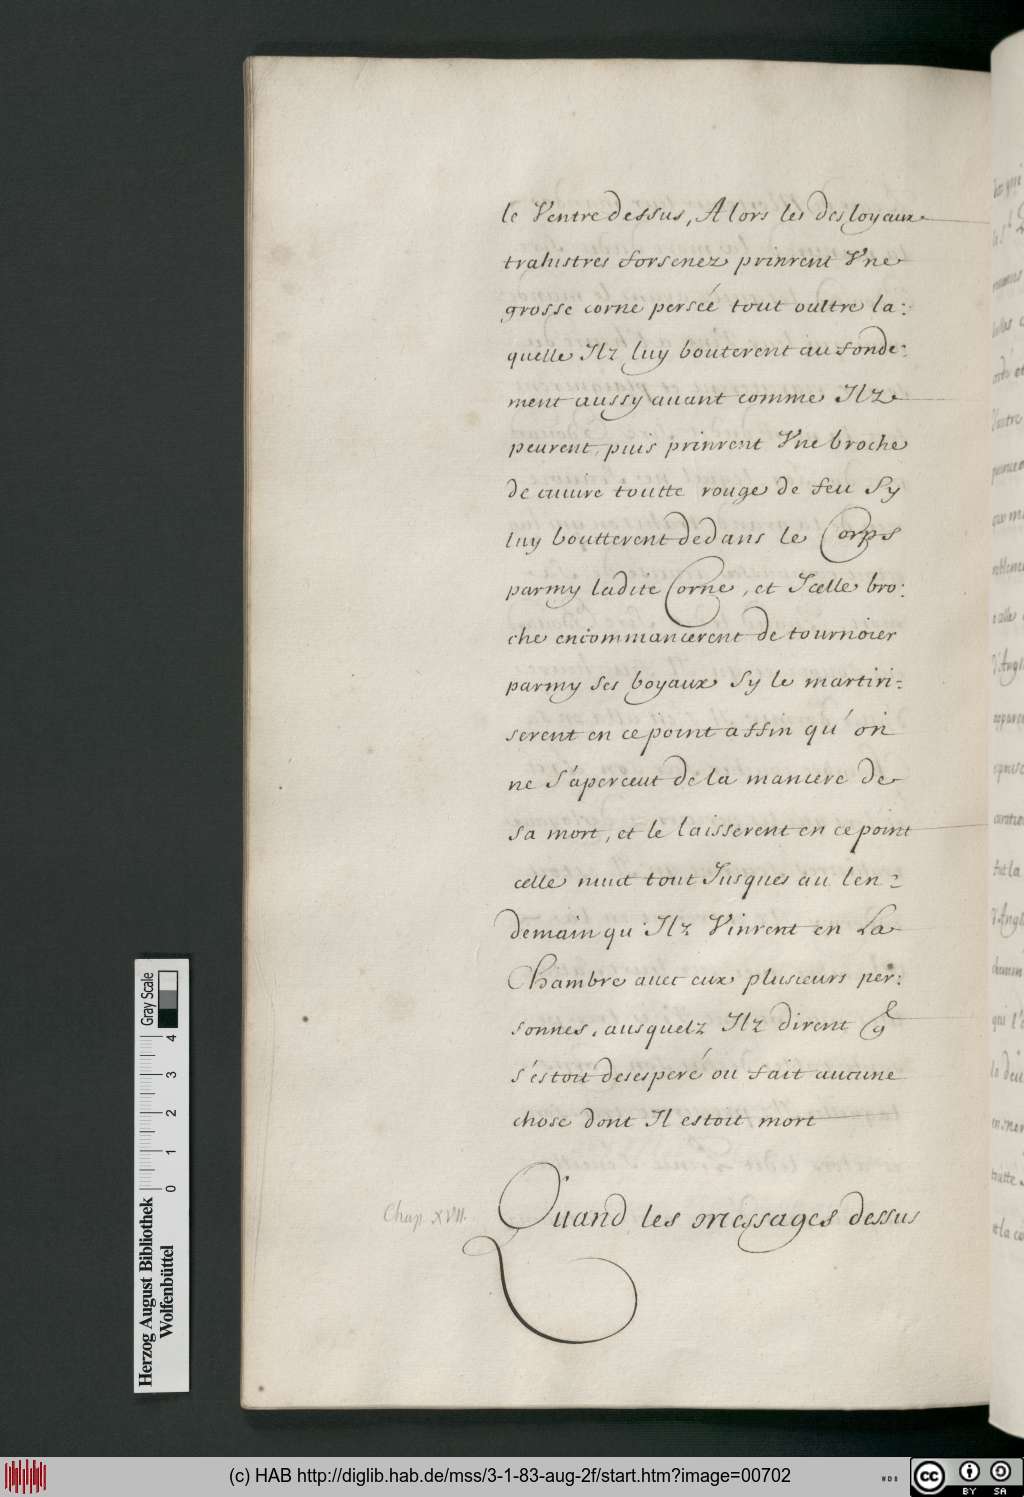 le Ventre dessus, Alors les desloyaux
trahistres forsenez prinrent Vne
grosse corne perseé tout oultre la:
quelle Ilz luy bouterent au fonde:
ment aussy auant comme Ilz
peurent, puis prinrent Vne broche
de cuiure toutte rouge de feu Sy
luy boutterent dedans le Corps
parmy ladite Corne, et Icelle bro:
che encommancerent de tournoier
parmy ses boyaux Sy le martiri:
serent en ce point affin qu'on
ne S'aperceut de la maniere de
sa mort, et le laisserent en ce point
celle nuict tout Jusques au len:
demain qu'Ilz Vinrent en La
Chambre auec eux plusieurs per:
sonnes, ausquelz Ilz dirent
s'estoit desesperé ou fait aucune
chose dont Il estoit mort
Chap. XVII.
Quand les messages dessus
Herzog August Bibliothek
Wolfenbüttel
0 1 2 3 4
Gray Scale
(c) HAB http://diglib.hab.de/mss/3-1-83-aug-2f/start.htm?image=00702
WDB
cc BY SA